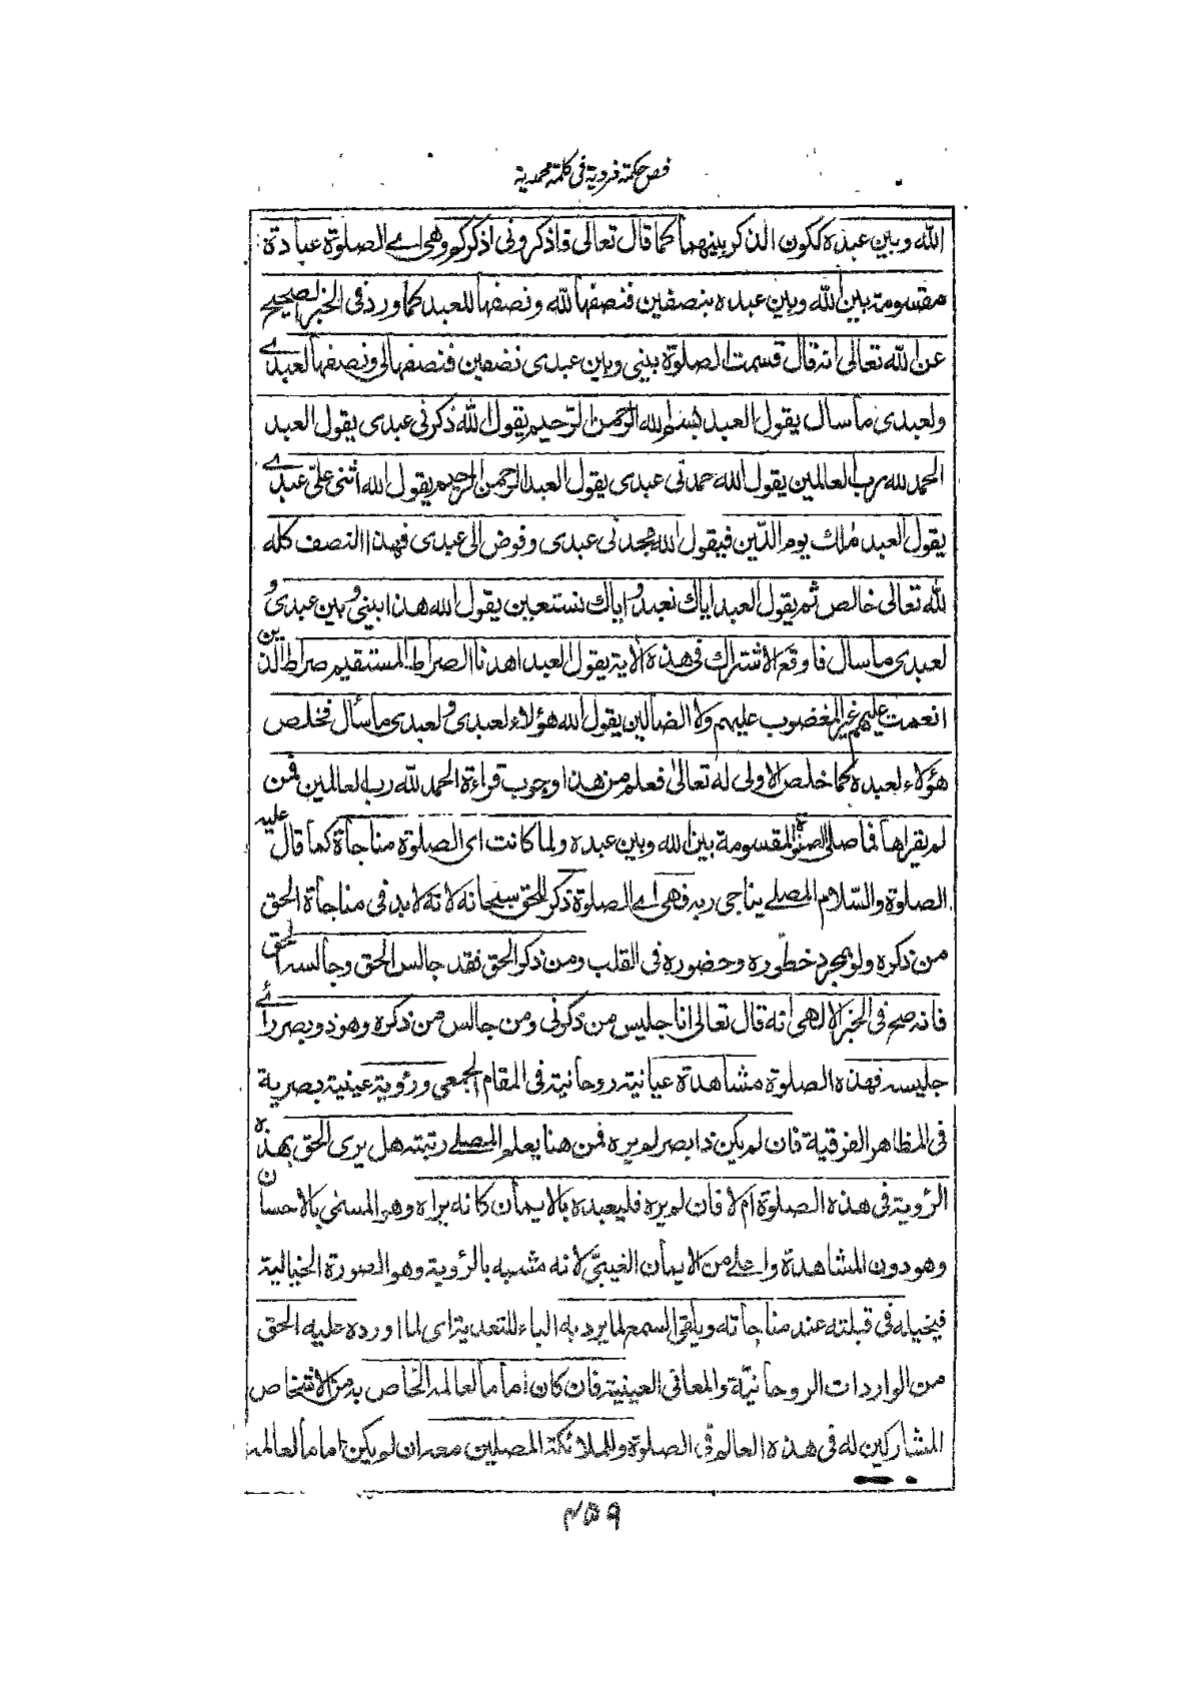 فص حكمة فردية فى كلمة محمدية
الله وبين عبده ككون الذكر بينهما كما قال تعالى فاذكرونى اذكركم وهى اے الصلوة عبادة
مقسومة بين الله وبين عبده بنصفين فنصفها لله ونصفها للعبد كما ورد فى الخبر الصحيح
عن الله تعالى انه قال قسمت الصلوة بينى وبين عبدى نصفين فنصفها لى ونصفها لعبدے
ولعبدى ما سال يقول العبد بسم الله الرحمن الرحيم يقول الله ذكرنى عبدى يقول العبد
الحمد لله رب العالمين يقول الله حمدنى عبدى يقول العبد الرحمن الرحيم يقول الله اثنى على عبدے
يقول العبد مالك يوم الدين فيقول الله مجدنى عبدى وفوض الى عبدى فهذا النصف كله
لله تعالى خالص ثم يقول العبد اياك نعبد واياك نستعين يقول الله هذا بينى وبين عبدى و
لعبدى ما سال فاوقع الاشتراك فى هذه الاية يقول العبد اهدنا الصراط المستقيم صراط الذين
انعمت عليهم غير المغضوب عليهم ولا الضالين يقول الله هؤلاء لعبدى ولعبدى ما سأل فخلص
هؤلاء لعبده كما خلص الاولى له تعالىٰ فعلم من هذا وجوب قراءة الحمد لله رب العالمين فمن
لم يقراها فما صلى الصلوة المقسومة بين الله وبين عبده ولما كانت اى الصلوة مناجاة كما قال عليه
الصلوة والسلام المصلے يناجى ربه فهى اے الصلوة ذكر للحق سبحانه لانه لابد فى مناجاة الحق
من ذكره ولو بمجرد خطوره وحضوره فى القلب ومن ذكر الحق فقد جالس الحق وجالسه الحق
فانه صح فى الخبر الالهى انه قال تعالى انا جليس من ذكرنى ومن جالس من ذكره وهو ذو بصر رأے
جليسه فهذه الصلوة مشاهدة عيانية روحانية فى المقام الجمعى ورؤية عينية بصرية
فى المظاهر الفرقية فان لم يكن ذا بصر لم يره فمن هنا يعلم المصلے رتبته هل يرى الحق بهذه
الرؤية فى هذه الصلوة ام لا فان لم يره فليعبده بالايمان كانه يراه وهو المسمى بالاحسان
وهو دون المشاهدة واعلے من الايمان الغيبى لانه مشبه بالرؤية وهو الصورة الخيالية
فيخيله فى قبلته عند مناجاته ويلقى السمع لما يرد به الباء للتعدية اى لما اورده عليه الحق
من الواردات الروحانية والمعانى العينية فان كان اماما لعالمه الخاص به من الاشخاص
المشاركين له فى هذه العالم فى الصلوة وللملائكة المصلين معه ان لم يكن اماما لعالمه
۴۵۹